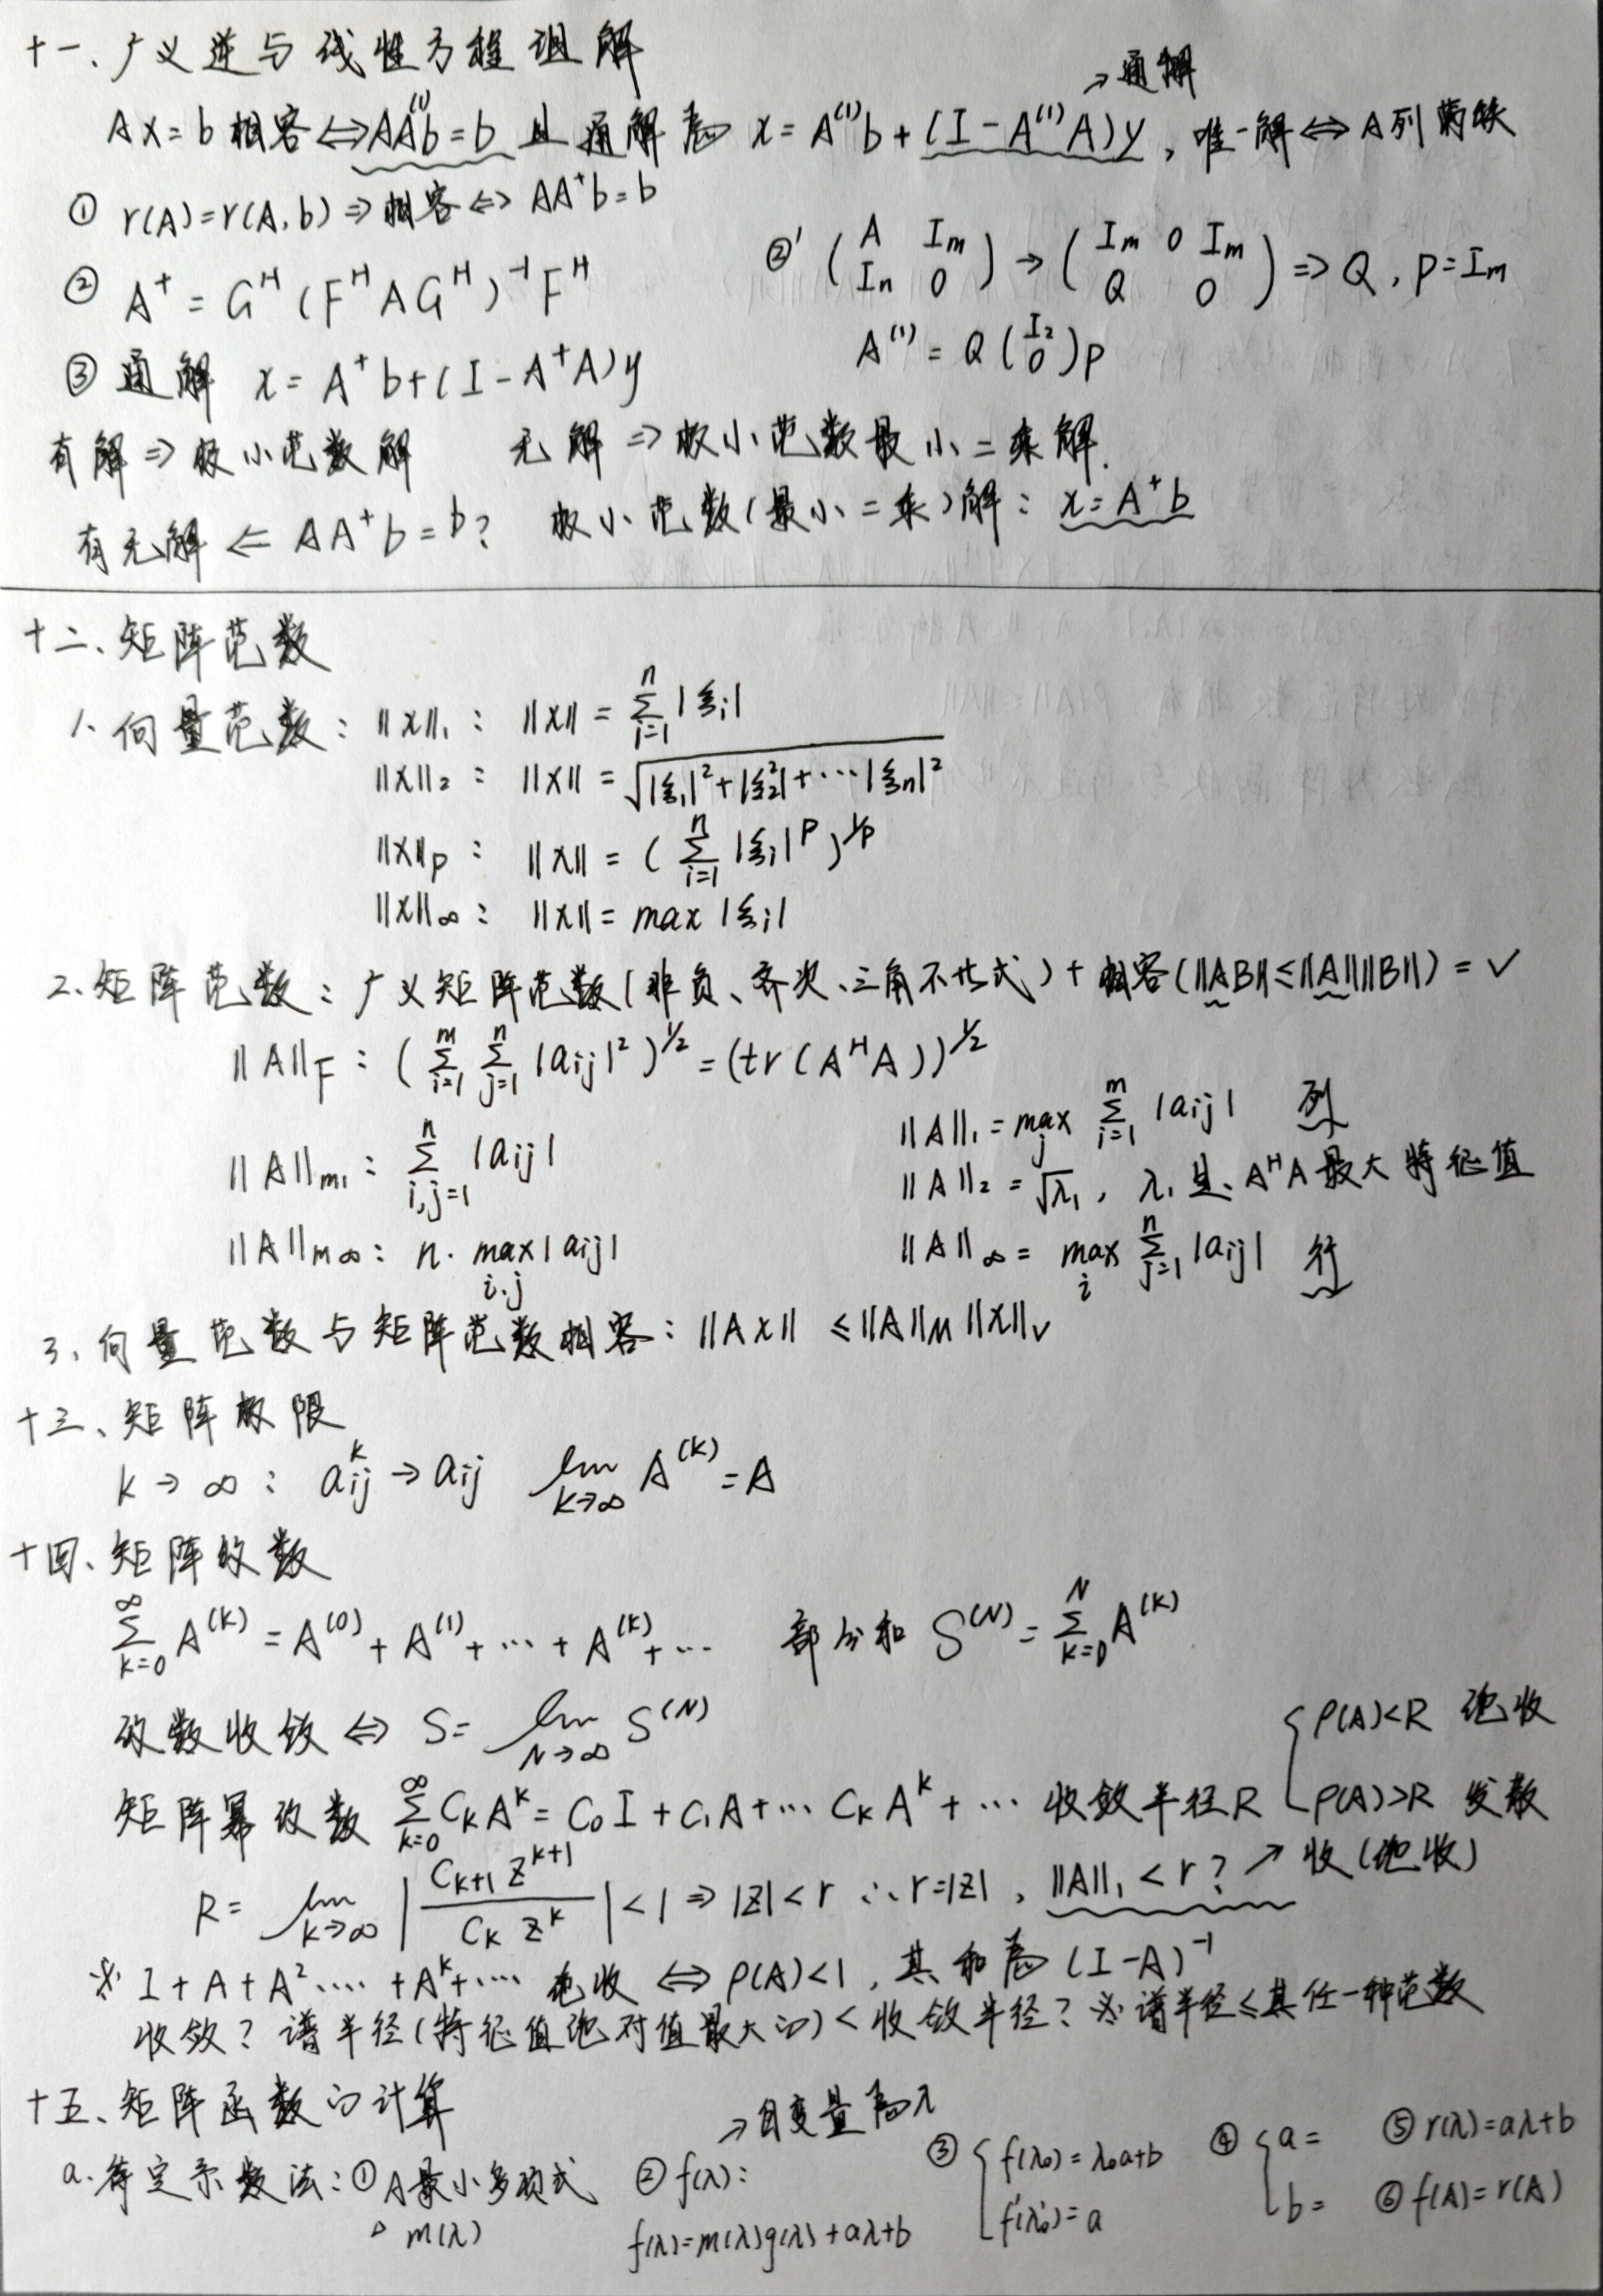 十一、广义逆与线性方程组解
→通解
Ax=b 相容⇔AA⁽¹⁾b=b 且通解为 x=A⁽¹⁾b+(I-A⁽¹⁾A)y, 唯一解⇔A列满秩
① r(A)=r(A,b)⇒相容⇔AA⁺b=b
② A⁺=Gᴴ(FᴴAGᴴ)⁻¹Fᴴ
②' (A Im; In 0)→(Im 0 Im; Q 0)⇒Q, P=Im
A⁽¹⁾=Q(I₂; 0)P
③ 通解 x=A⁺b+(I-A⁺A)y
有解⇒极小范数解 无解⇒极小范数最小二乘解.
有无解⇐AA⁺b=b? 极小范数(最小二乘)解: x=A⁺b
十二、矩阵范数
1. 向量范数: ‖x‖₁: ‖x‖=∑ⁿᵢ₌₁|ξᵢ|
‖x‖₂: ‖x‖=√(|ξ₁|²+|ξ₂²|+⋯|ξₙ|²)
‖x‖p: ‖x‖=(∑ⁿᵢ₌₁|ξᵢ|ᴾ)^1/p
‖x‖∞: ‖x‖=max|ξᵢ|
2. 矩阵范数: 广义矩阵范数(非负、齐次、三角不等式)+相容(‖AB‖≤‖A‖‖B‖)=✓
‖A‖F: (∑ᵐᵢ₌₁∑ⁿⱼ₌₁|aij|²)^1/2=(tr(AᴴA))^1/2
‖A‖m₁: ∑ⁿi,j=1|aij|
‖A‖m∞: n·max i.j|aij|
‖A‖₁=max j ∑ᵐᵢ₌₁|aij| 列
‖A‖₂=√λ₁, λ₁是AᴴA最大特征值
‖A‖∞=max i ∑ⁿⱼ₌₁|aij| 行
3. 向量范数与矩阵范数相容: ‖Ax‖≤‖A‖M‖x‖V
十三、矩阵极限
k→∞: aᵏij→aij lim k→∞ A⁽ᵏ⁾=A
十四、矩阵级数
∑^∞ k=0 A⁽ᵏ⁾=A⁽⁰⁾+A⁽¹⁾+⋯+A⁽ᵏ⁾+⋯ 部分和 S⁽ᴺ⁾=∑ᴺ k=0 A⁽ᵏ⁾
级数收敛⇔S=lim N→∞ S⁽ᴺ⁾
矩阵幂级数 ∑^∞ k=0 CkAᵏ=C₀I+C₁A+⋯CkAᵏ+⋯ 收敛半径R { ρ(A)<R 绝收
ρ(A)>R 发散
R=lim k→∞ |Ck+1 z^k+1 / Ck zᵏ|<1⇒|z|<r ∴r=|z|, ‖A‖₁<r?↗收(绝收)
※ I+A+A²⋯+Aᵏ+⋯ 绝收⇔ρ(A)<1, 其和为(I-A)⁻¹
收敛? 谱半径(特征值绝对值最大的)<收敛半径? ※谱半径≤其任一种范数
十五、矩阵函数的计算
→自变量为λ
a. 待定系数法: ①A最小多项式 m(λ)
② f(λ):
f(λ)=m(λ)g(λ)+aλ+b
③ { f(λ₀)=λ₀a+b
f'(λ₀)=a
④ { a=
b=
⑤ r(λ)=aλ+b
⑥ f(A)=r(A)